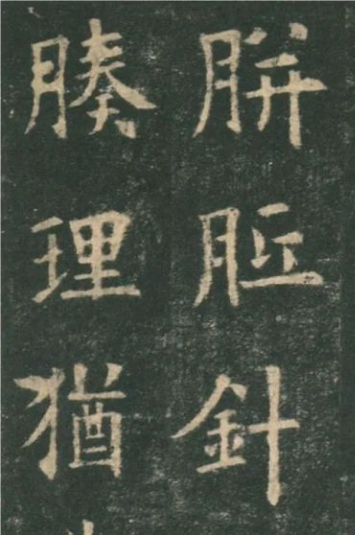 胼胝針
腠理猶